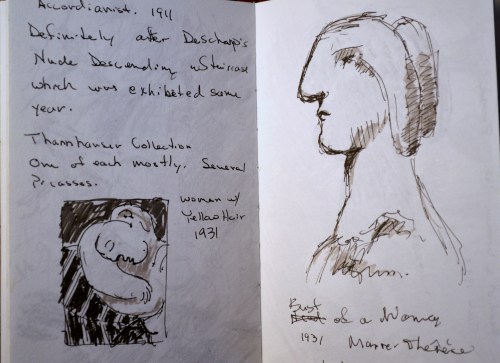 Accordianist. 1911
Definitely after Deschamp's
Nude Descending a Staircase
which was exhibited same
year.
Thannhauser Collection
One of each mostly. Several
Picasses.
Woman w/
Yellow Hair
1931
Bust
of a Woman
1931 Marie-Thérèse